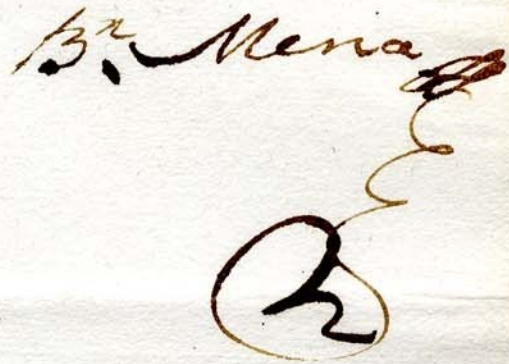 Bn. Mena